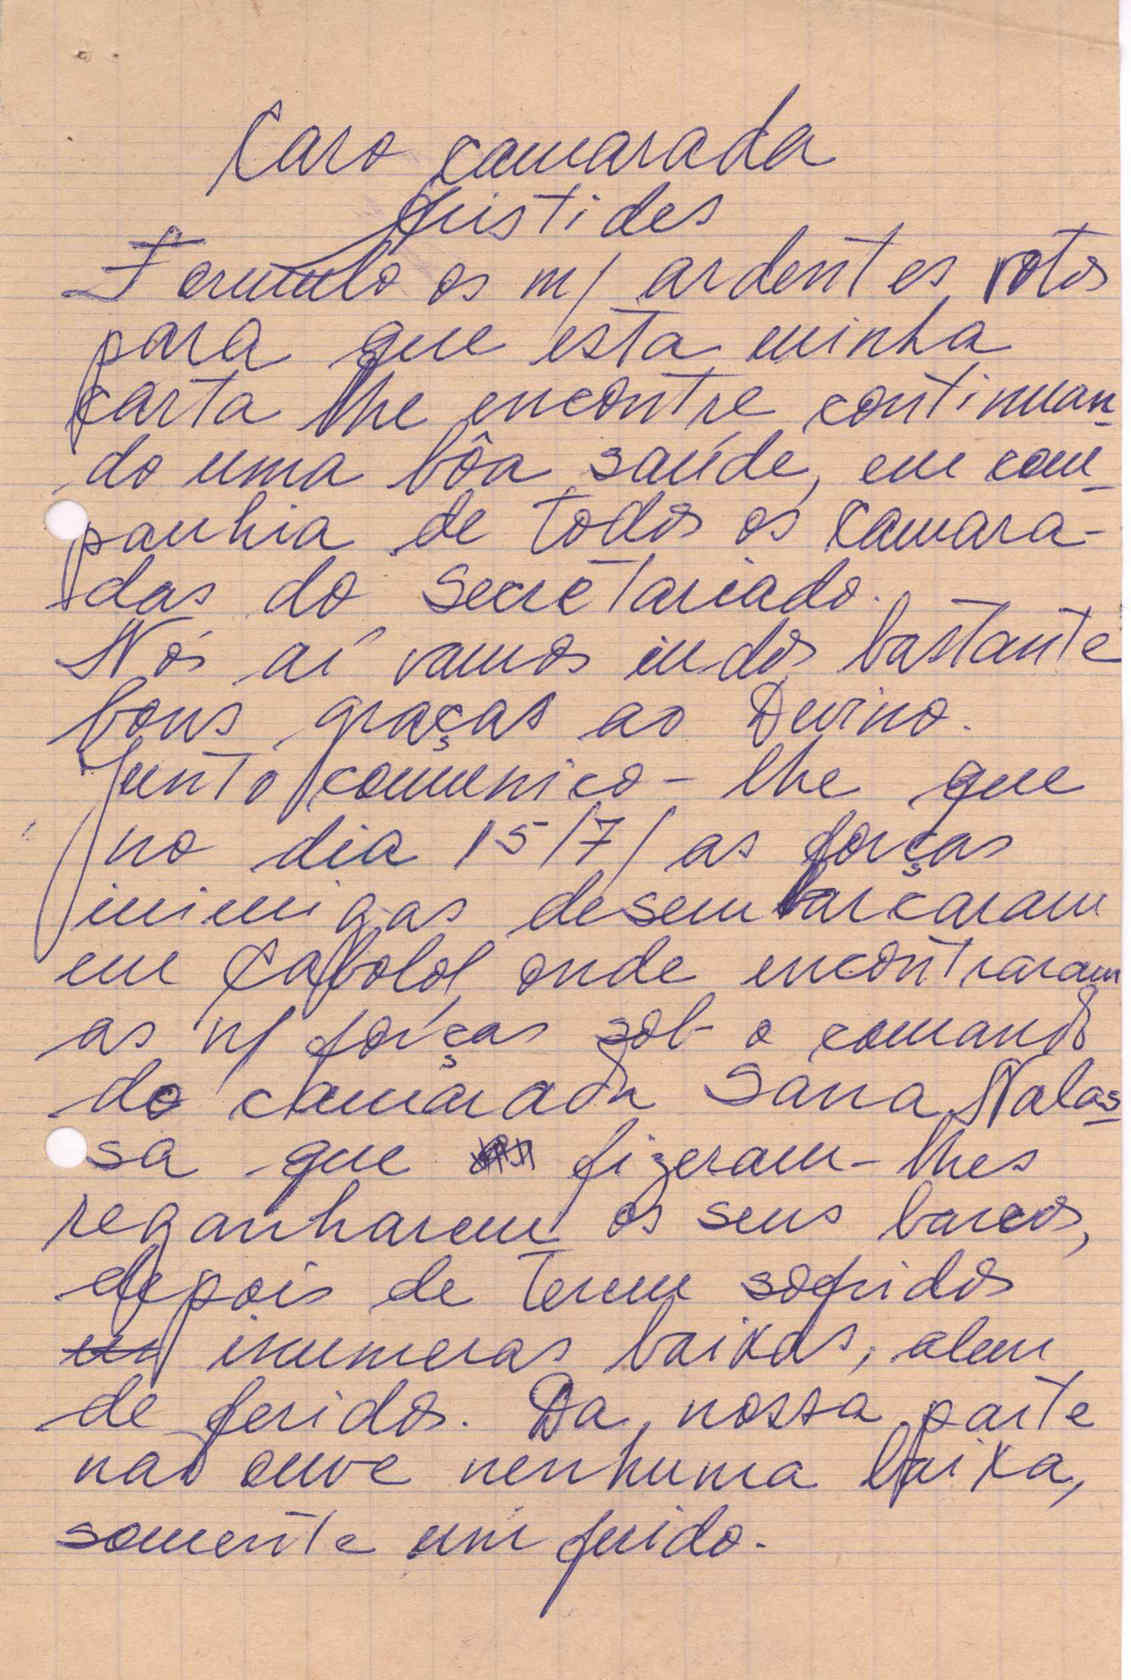 Caro camarada
Aristides
Formulo os m/ ardentes votos
para que esta minha
carta lhe encontre continuan-
do uma bôa saúde, em com-
panhia de todos os camara-
das do Secretariado.
Nós aí vamos indos bastante
bons graças ao Divino.
Junto comunico-lhe que
no dia 15/7/ as forças
inimigas desembarcaram
em Cafolol, onde encontraram
as n/ forças sob o comando
do camarada Sana Nalas-
sa que fizeram-lhes
reganharem os seus barcos,
depois de terem sofridos
inumeras baixas, alem
de feridos. Da nossa parte
não ouve nenhuma baixa,
somente um ferido.